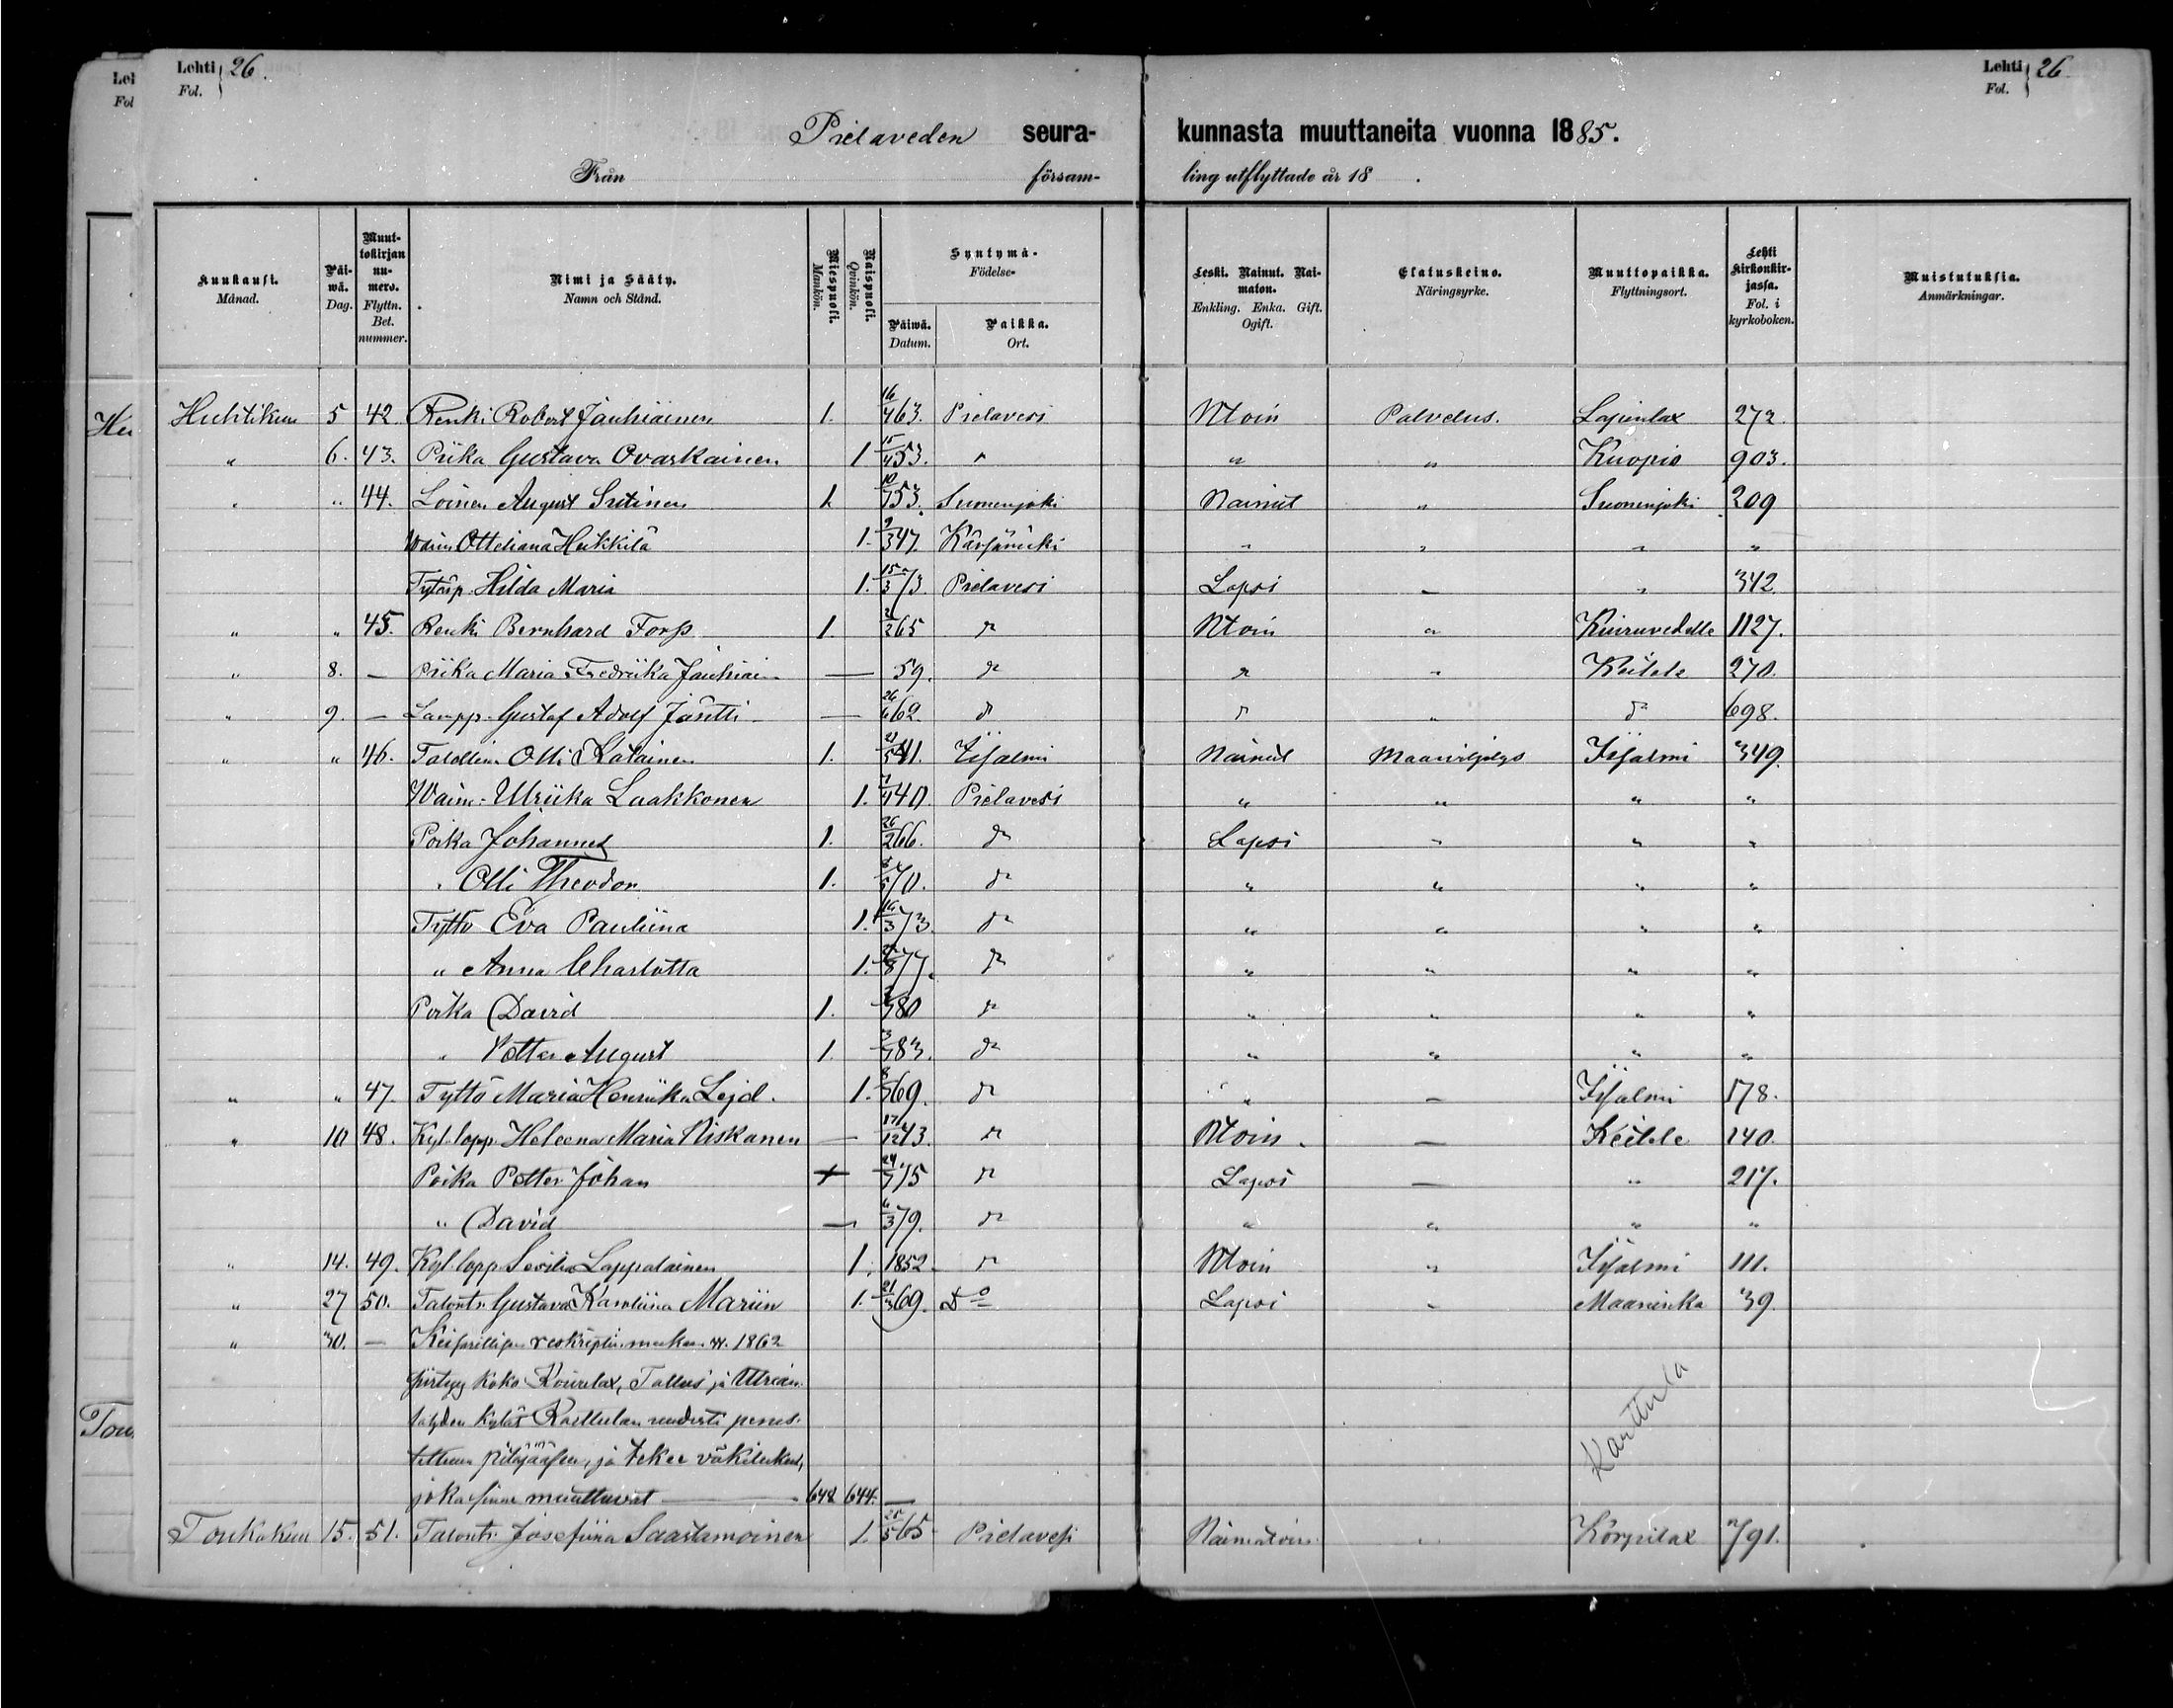 Lehti 26.
Fol.
Lehti 26.
Fol.
Pielaveden seura- kunnasta muuttaneita vuonna 1885.
Från försam- ling utflyttade år 18 .
Kuukausi. Månad. Päiwä. Dag. Muuttokirjan numero. Flyttn. Bet. nummer. Nimi ja Sääty. Namn och Stånd. Miespuoli. Mankön. Naispuoli. Qvinkön. Syntymä- Födelse- Päiwä. Datum. Paikka. Ort. Leski. Nainut. Naimaton. Enkling. Enka. Gift. Ogift. Elatuskeino. Näringsyrke. Muuttopaikka. Flyttningsort. Lehti kirkonkirjassa. Fol. i kyrkoboken. Muistutuksia. Anmärkningar.
Huhtikuu 5 42. Renki Robert Jauhiainen 1. 16/4 63. Pielavesi Ntoin Palvelus. 272.
" 6. 43. Piika Gustava Ovaskainen 1 15/4 53. " " " Kuopio 903.
" " 44. Loinen August Sutinen 1. 10/7 53. Suonenjoki Nainut " Suonenjoki 209
Waim Otteliana Heikkilä 1. 9/3 47. " " " "
Hilda Maria 1. 15/3 73. Pielavesi Lapsi " " 342.
" " 45. Renki Bernhard Forss 1. /2 65 do Ntoin " Kiuruvedelle 1127.
" 8. — Piika Maria Fredriika Jauhiain — 59. do " " Keitele 270.
" 9. — Lampp. Gustaf Adolf Jäntti — 26/6 62. do do " do 698.
" " 46. Olli Katainen 1. 21/5 41. Iisalmi Nainut Maanviljelys Iisalmi 349.
Waim. Ulriika Laakkonen 1. 40. Pielavesi " " " "
Poika Johannes 1. 26/2 66. do Lapsi " " "
" Olli Theodor 1. 70. do " " " "
Tyttö Eva Pauliina 1. 16/3 73. do " " " "
" Anna Charlotta 1. /8 77. do " " " "
Poika David 1. 80 do " " " "
" Petter August 1. 83. do " " " "
" " 47. Tyttö Maria Henriika Lejd. 1. 69. do " — Iisalmi 178.
" 10 48. Kyl. lopp. Heleena Maria Niskanen — 17/12 43. do Ntoin. — Keitele 140
Poika Petter Johan 24/ 75 do Lapsi — " 217.
" David — 6/3 79. do " " " "
" 14. 49. Kyl. lopp Lappalainen 1. 1852. do Ntoin " Iisalmi 111.
" 27 50. Talontr. Gustava Karoliina Mariin 1. 21/3 69. Do Lapsi " Maaninka 39.
" 30. — Keisarillisen reskriptin mukaan w. 1862
siirtyy koko Tallus ja
lahden kylät Karttulan uudesti perus-
tettuun pitäjääsen, ja tekee väkiluku,
joka sinne muuttuvat — 648 644. —
Karttula
Toukokuu 15. 51. Talontr. Josefiina Saastamoinen 1. 25/5 65 Pielavesi Naimatoin " Korpilax 791.
Hu
Tou